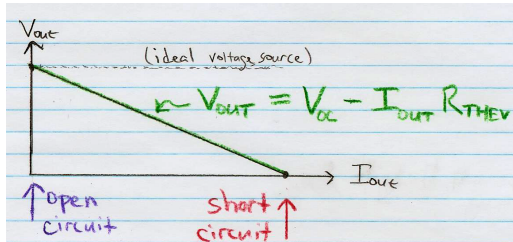 Vout
(ideal voltage source)
VOUT = VOC - IOUT RTHEV
Iout
open
circuit
short
circuit